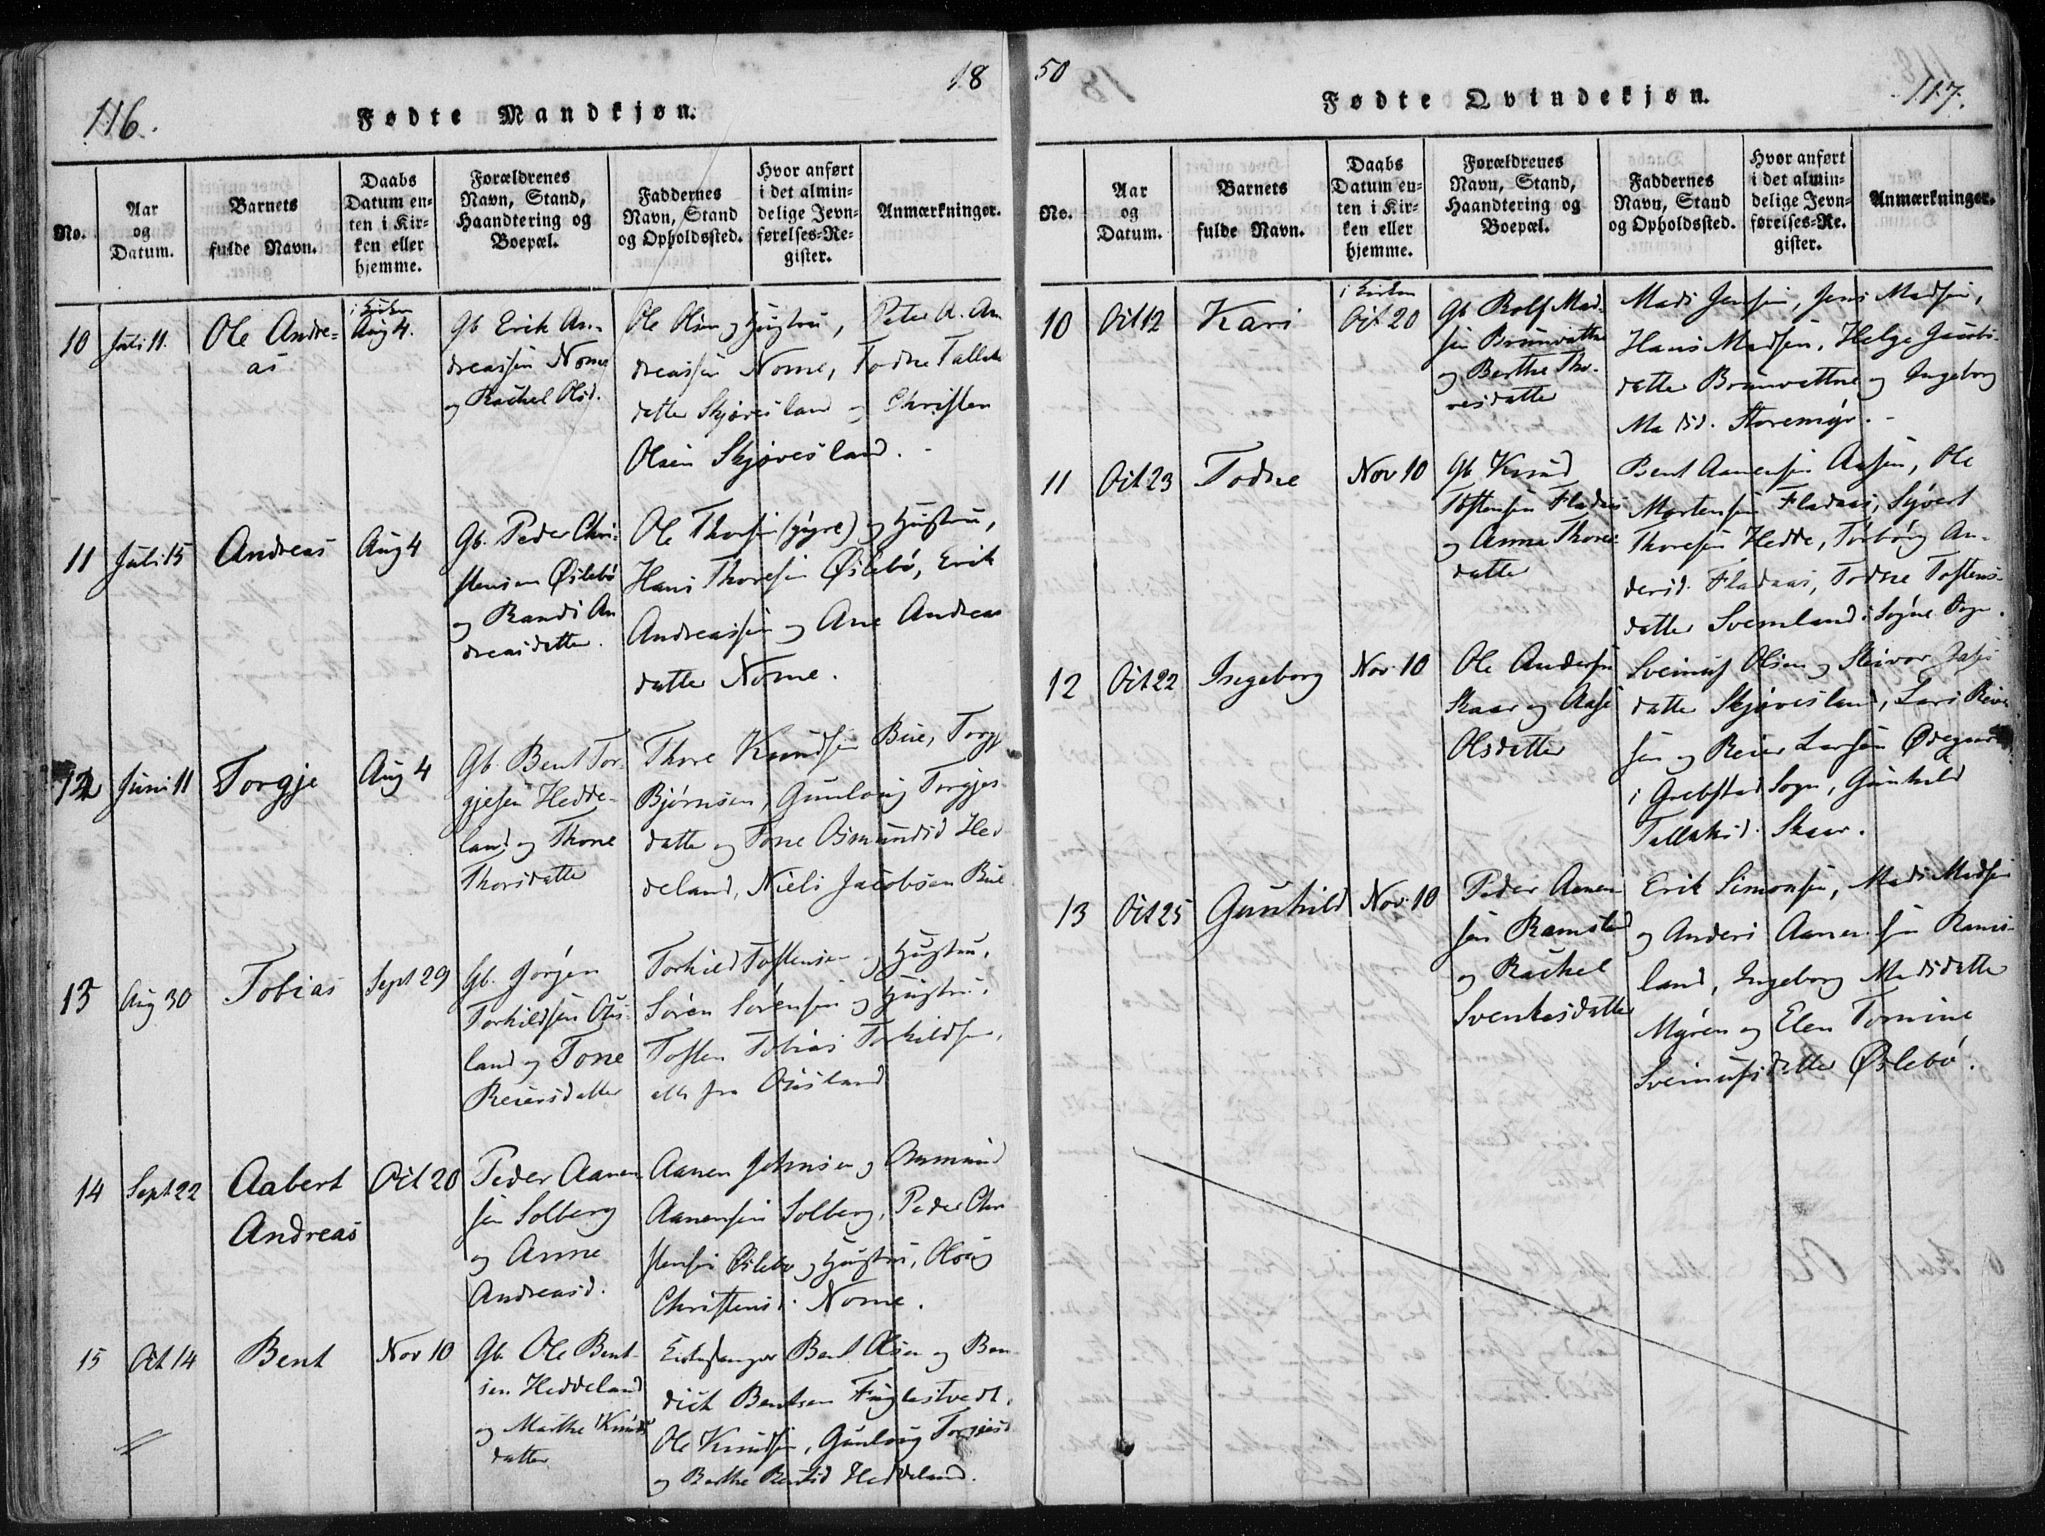 116.
18
Fødte Mandkjøn.
No.
Aar
og
Datum.
Barnets
fulde Navn.
Daabs
Datum en-
ten i Kir-
ken eller
hjemme.
Forældrenes
Navn, Stand,
Haandtering og
Boepæl.
Faddernes
Navn, Stand
og Opholdssted.
Hvor anført
i det almin-
delige Jevn-
førelses-Re-
gister.
Anmærkninger.
10
Juli 11.
Ole Andre-
as
i Kirken
Aug 4.
Gb. Erik An-
dreassen Nome
og Rachel Olsd.
Ole Olsen og Hustru, Peter A. An
dreassen Nome, Todne Tallak
datter Skjøvesland og Christen
Olsen Skjøvesland.
11
Juli 15
Andreas
Aug 4
Gb. Peder Chri-
stensen Øslebø
og Randi An
dreasdatter.
Ole Thorsen (gyre) og Hustru,
Hans Thoresen Øslebø, Erik
Andreassen og Ane Andreas
datter Nome.
12
Juni 11
Torgje
Aug 4
Gb. Bent Tor-
gjesen Hedde-
land og Thone
Thorsdatter
Thore Knudsen Bue, Torgje
Bjørnsen, Gunloug Torgjes-
datter og Tone Osmundsd Hed-
deland, Niels Jacobsen Bue
13
Aug 30
Tobias
Sept 29
Gb. Jørgen
Torkildsen Ous-
land og Tone
Reiersdatter
Torkild Toftensen og Hustru,
Søren Sørensen og Hustru,
Toften Tobias Torkildsen,
alle fra Ousland
14
Sept 22
Aabert
Andreas
Oct 20
Peder Aanen
sen Solberg
og Anne
Andreasd.
Aanen Johnsen og Osmund
Aanensen Solberg, Peder Chri
stensen Øslebø og Hustru, Oloug
Christensd. Nome.
15
Oct 14
Bent
Nov 10
Gb. Ole Bent-
sen Heddeland
og Marthe Knuds
datter
Kirkesanger Bent Olsen og Ben
dict Bentsen Fuglestvedt,
Ole Knudsen, Gunloug Torgjesd
og Berthe Bentsd Heddeland.
50
117.
Fødte Qvindekjøn.
No.
Aar
og
Datum.
Barnets
fulde Navn.
Daabs
Datum en-
ten i Kir-
ken eller
hjemme.
Forældrenes
Navn, Stand,
Haandtering og
Boepæl.
Faddernes
Navn, Stand
og Opholdssted.
Hvor anført
i det almin-
delige Jevn-
førelses-Re-
gister.
Anmærkninger.
10
Oct 12
Kari
i Kirken
Oct 20
Gb Rolf Mad-
sen Brunvatne
og Berthe Tho-
resdatter
Mads Jensen, Jens Madsen,
Hans Madsen, Helge Jacobs-
datter Brunvattne og Ingeborg
Madsd. Storemyr.
11
Oct 23
Todne
Nov 10
Gb Knud
Toftensen Fladaas
og Anna Thores-
datter
Bent Aanensen Aasen, Ole
Mortensen Fladaas, Syvert
Thoresen Hedde, Torborg An-
dersd. Fladaas, Todne Toftens-
datter Svemland i Søgne Sogn.
12
Oct 22
Ingeborg
Nov. 10
Ole Andersen
Skaar og Aase
Olsdatter
Sveinus Olsen og Steivor
datter Skjøvesland, Lars Reier
sen og Reier Larsen Ødegaard
i Grebstad Sogn, Gunhild
Tallaksd. Skaar.
13
Oct 25
Gunhild
Nov. 10
Peder Aanen
sen Ramsland
og Rachel
Svenkesdatter
Erik Simonsen, Mads Madsen
og Anders Aanensen Rams-
land, Ingeborg Madsdatter
Myren og Elen Tomine
Sveinusdatter Øslebø.